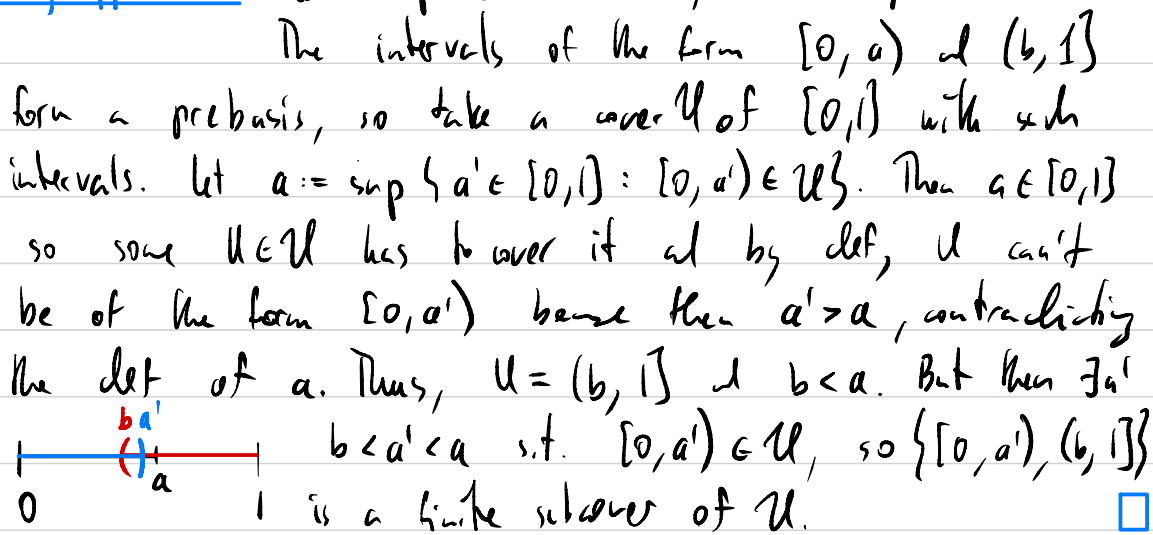 The intervals of the form [0, a) and (b, 1]
form a prebasis, so take a cover 𝒰 of [0,1] with such
intervals. Let a := sup { a' ∈ [0,1] : [0, a') ∈ 𝒰 }. Then a ∈ [0,1]
so some U ∈ 𝒰 has to cover it and by def, U can't
be of the form [0, a') because then a' > a, contradicting
the def of a. Thus, U = (b, 1] and b < a. But then ∃a'
b a'
b < a' < a s.t. [0, a') ∈ 𝒰, so {[0, a'), (b, 1]}
( )
a
0 1
is a finite subcover of 𝒰. □